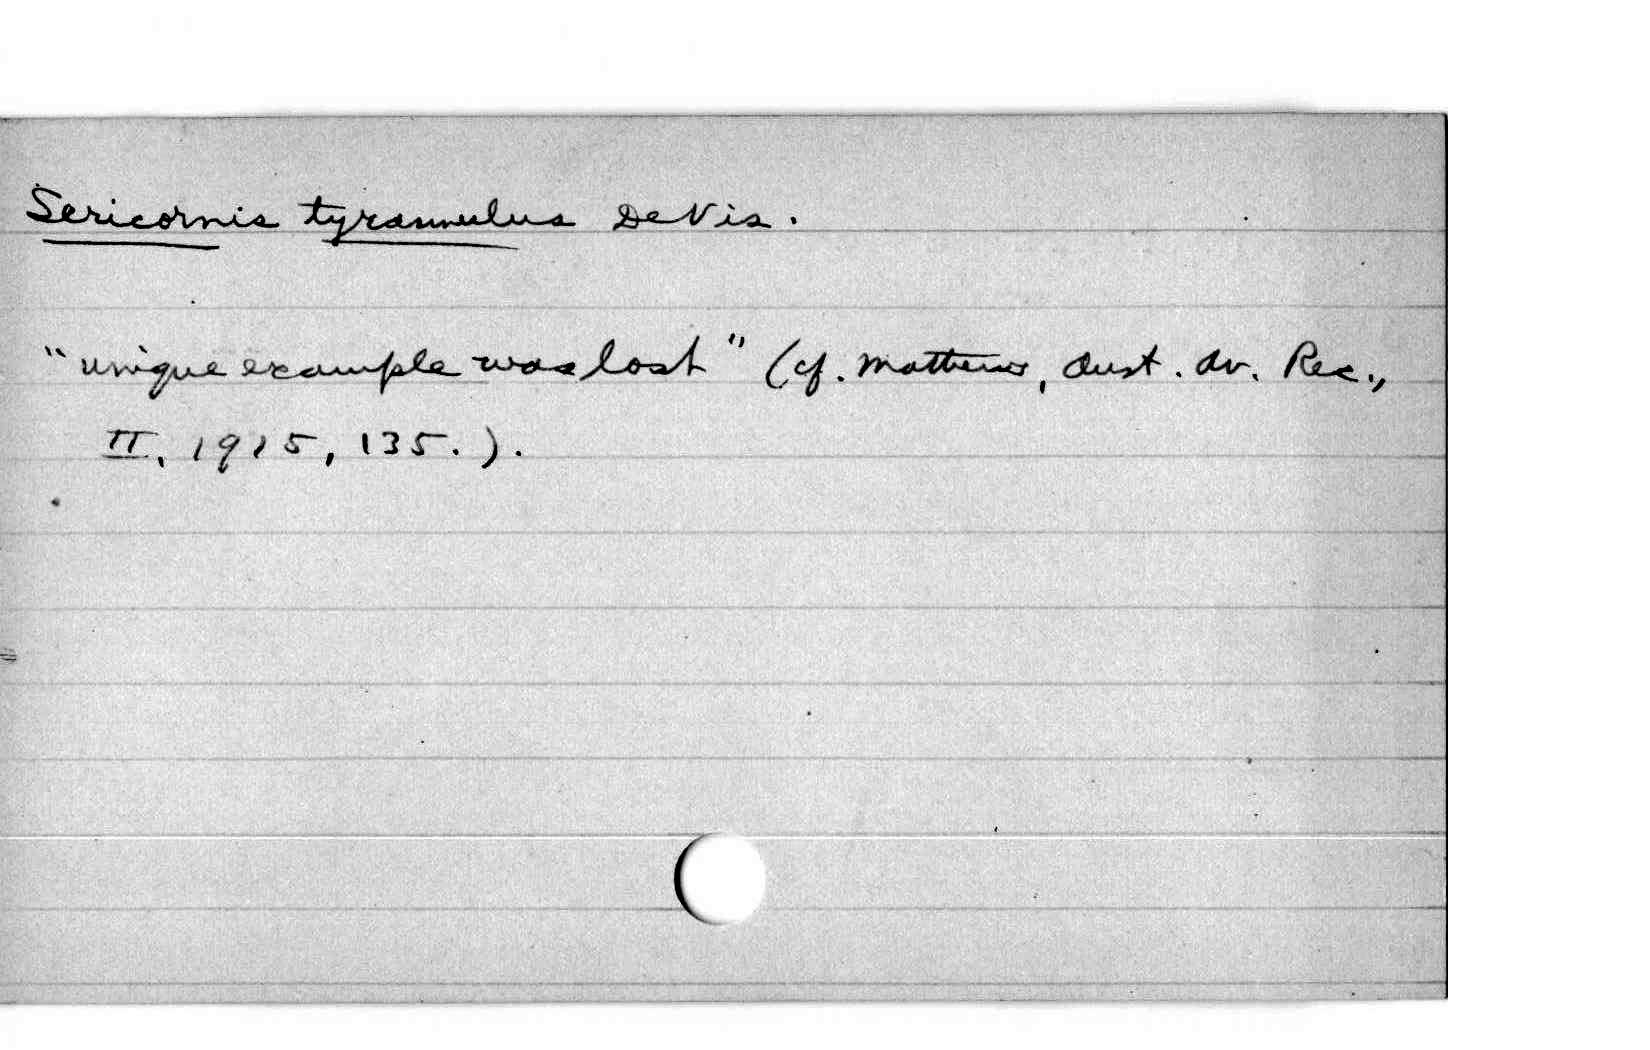 Sericornis tyrannulus De Vis.
"unique example was lost" (cf. Mathews, Aust. Av. Rec.,
II, 1915, 135.).